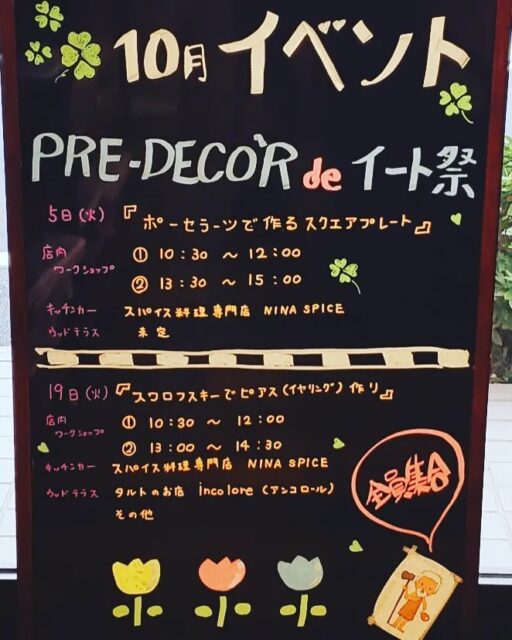 10月イベント
PRE-DECO'R de イート祭
5日(火) 『ポーセラーツで作るスクエアプレート』
店内ワークショップ ① 10:30 ～ 12:00
② 13:30 ～ 15:00
キッチンカー スパイス料理専門店 NINA SPICE
ウッドテラス 未定
19日(火) 『スワロフスキーでピアス(イヤリング)作り』
店内ワークショップ ① 10:30 ～ 12:00
② 13:00 ～ 14:30
キッチンカー スパイス料理専門店 NINA SPICE
ウッドテラス タルトのお店 incolore (アンコロール)
その他
全員集合